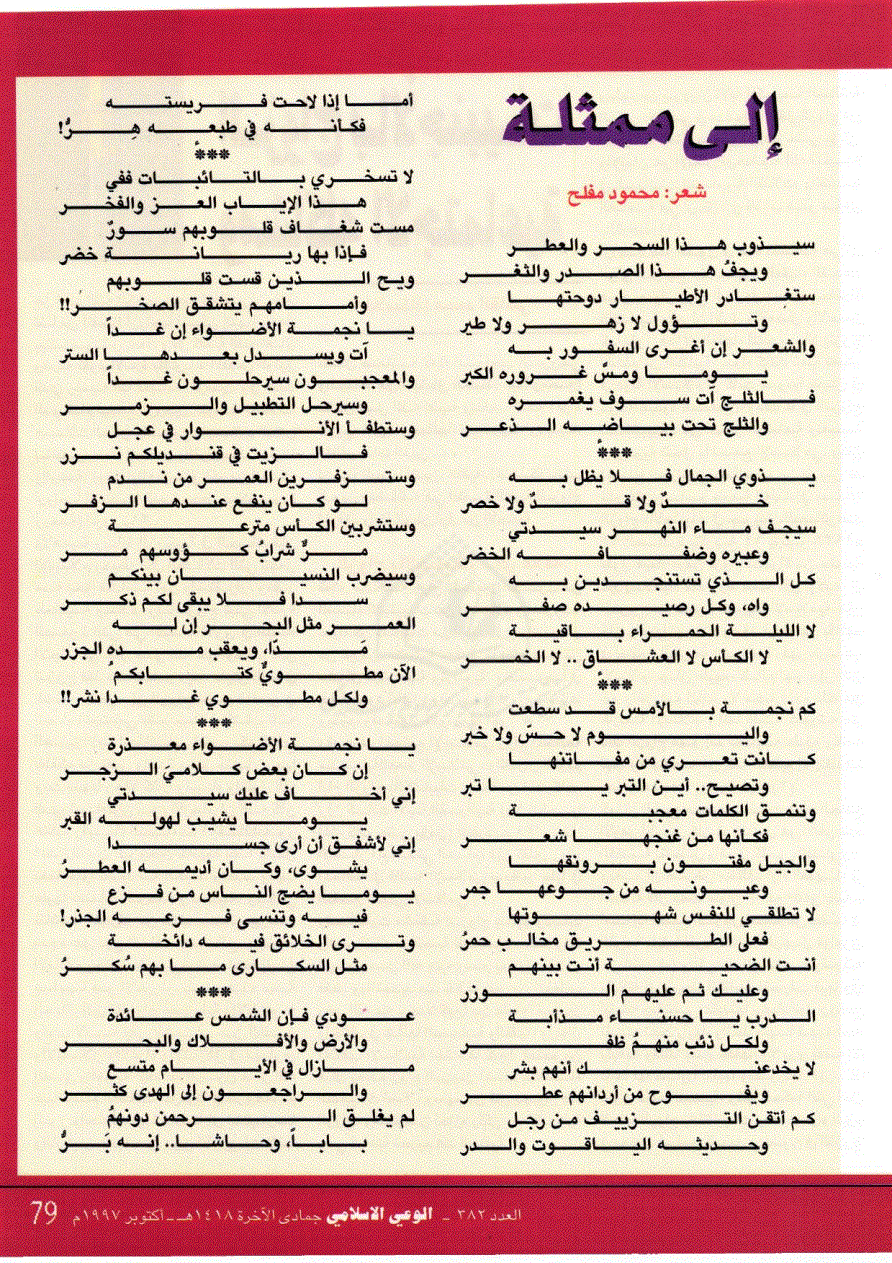 إلى ممثلة
شعر: محمود مفلح
سيذوب هذا السحر والعطر
ويجفُ هذا الصدر والثغر
ستغادر الأطيار دوحتها
وتؤول لا زهر ولا طير
والشعر إن أغرى السفور به
يوما ومسَّ غروره الكبر
فالثلج آت سوف يغمره
والثلج تحت بياضه الذعر
***
يذوي الجمال فلا يظل به
خدٌ ولا قدٌ ولا خصر
سيجف ماء النهر سيدتي
وعبيره وضفافه الخضر
كل الذي تستنجدين به
واه، وكل رصيده صفر
لا الليلة الحمراء باقية
لا الكأس لا العشاق .. لا الخمر
***
كم نجمة بالأمس قد سطعت
واليوم لا حسّ ولا خبر
كانت تعري من مفاتنها
وتصيح.. أين التبر يا تبر
وتنمق الكلمات معجبة
فكأنها من غنجها شعر
والجيل مفتون برونقها
وعيونه من جوعها جمر
لا تطلقي للنفس شهوتها
فعلى الطريق مخالب حمرُ
أنت الضحية أنت بينهم
وعليك ثم عليهم الوزر
الدرب يا حسناء مذأبة
ولكل ذئب منهمُ ظفر
لا يخدعنك أنهم بشر
ويفوح من أردانهم عطر
كم أتقن التزييف من رجل
وحديثه الياقوت والدر
أما إذا لاحت فريسته
فكأنه في طبعه هِرُّ!
***
لا تسخري بالتائبات ففي
هذا الإياب العز والفخر
مست شغاف قلوبهم سورٌ
فإذا بها ريانة خضر
ويح الذين قست قلوبهم
وأمامهم يتشقق الصخر!!
يا نجمة الأضواء إن غداً
آت ويسدل بعدها الستر
والمعجبون سيرحلون غداً
وسيرحل التطبيل والزمر
وستطفأ الأنوار في عجل
فالزيت في قنديلكم نزر
وستزفرين العمر من ندم
لو كان ينفع عندها الزفر
وستشربين الكأس مترعة
مرٌّ شرابُ كؤوسهم مر
وسيضرب النسيان بينكم
سدا فلا يبقى لكم ذكر
العمر مثل البحر إن له
مَدًا، ويعقب مده الجزر
الآن مطويٌّ كتابكمُ
ولكل مطوي غدا نشر!!
***
يا نجمة الأضواء معذرة
إن كان بعض كلاميَ الزجر
إني أخاف عليك سيدتي
يوما يشيب لهوله القبر
إني لأشفق أن أرى جسدا
يشوى، وكان أديمه العطرُ
يوما يضج الناس من فزع
فيه وتنسى فرعه الجذر!
وترى الخلائق فيه دائخة
مثل السكارى ما بهم سُكرُ
***
عودي فإن الشمس عائدة
والأرض والأفلاك والبحر
مازال في الأيام متسع
والراجعون إلى الهدى كثر
لم يغلق الرحمن دونهمُ
باباً، وحاشا.. إنه بَرُّ
العدد ٣٨٢ - الوعي الاسلامي جمادى الآخرة ١٤١٨هـ - أكتوبر ١٩٩٧م 79